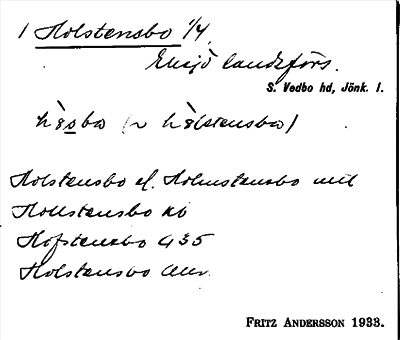 1 Holstensbo 1/4
Eksjö landsförs.
S. Vedbo hd, Jönk. l.
hòsbo (~ hòlstensbo)
Holstensbo el. Holmstensbo
Hollstensbo kb
Hofstensbo G 35
Holstensbo
FRITZ ANDERSSON 1933.